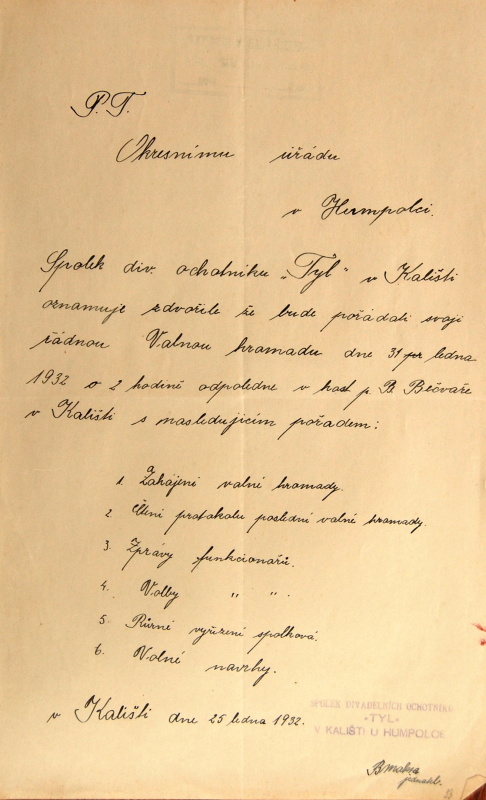 P. T.
Okresnímu úřádu
v Humpolci.
Spolek div. ochotníku „Tyl“ v Kališti
oznamuje zdvořile že bude pořádati svoji
řádnou Valnou hromadu dne 31 ledna
1932 o 2 hodině odpoledne v host p. Bečváře
v Kališti s následujícím pořadem:
1. Zahájení valné hromady.
2. Čtení protokolu poslední valné hromady.
3. Zprávy funkcionářů.
4. Volby " " .
5. Různé vyřízení spolková.
6. Volné navrhy.
v Kališti dne 25 ledna 1932.
SPOLEK DIVADELNÍCH OCHOTNÍKŮ
«TYL»
V KALIŠTI U HUMPOLCE
jednatel.